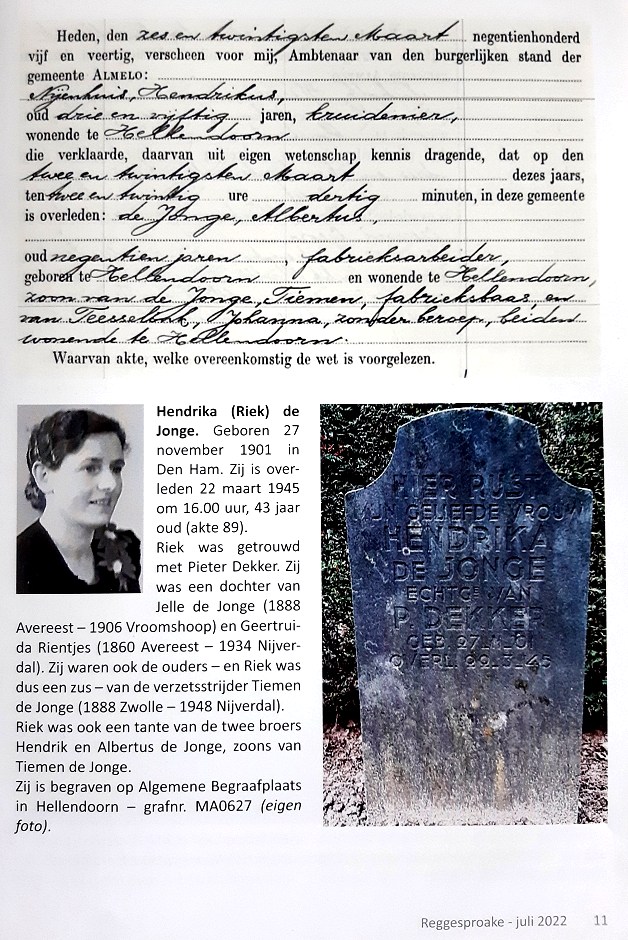 Heden, den zes en twintigsten Maart negentienhonderd
vijf en veertig, verscheen voor mij, Ambtenaar van den burgerlijken stand der
gemeente ALMELO:
Nijenhuis, Hendrikus,
oud drie en vijftig jaren, kruidenier,
wonende te Hellendoorn
die verklaarde, daarvan uit eigen wetenschap kennis dragende, dat op den
twee en twintigsten Maart dezes jaars,
ten twee en twintig ure dertig minuten, in deze gemeente
is overleden: de Jonge, Albertus,
oud negentien jaren, fabrieksarbeider,
geboren te Hellendoorn en wonende te Hellendoorn,
zoon van de Jonge, Tiemen, fabrieksbaas, en
van Teesselink, Johanna, zonder beroep, beiden
wonende te Hellendoorn.
Waarvan akte, welke overeenkomstig de wet is voorgelezen.
Hendrika (Riek) de
Jonge. Geboren 27
november 1901 in
Den Ham. Zij is over-
leden 22 maart 1945
om 16.00 uur, 43 jaar
oud (akte 89).
Riek was getrouwd
met Pieter Dekker. Zij
was een dochter van
Jelle de Jonge (1888
Avereest – 1906 Vroomshoop) en Geertrui-
da Rientjes (1860 Avereest – 1934 Nijver-
dal). Zij waren ook de ouders – en Riek was
dus een zus – van de verzetsstrijder Tiemen
de Jonge (1888 Zwolle – 1948 Nijverdal).
Riek was ook een tante van de twee broers
Hendrik en Albertus de Jonge, zoons van
Tiemen de Jonge.
Zij is begraven op Algemene Begraafplaats
in Hellendoorn – grafnr. MA0627 (eigen
foto).
HIER RUST
MIJN GELIEFDE VROUW
HENDRIKA
DE JONGE
ECHTG. VAN
P. DEKKER
GEB. 27.11.'01
OVERL. 22.3.'45
Reggesproake - juli 2022 11